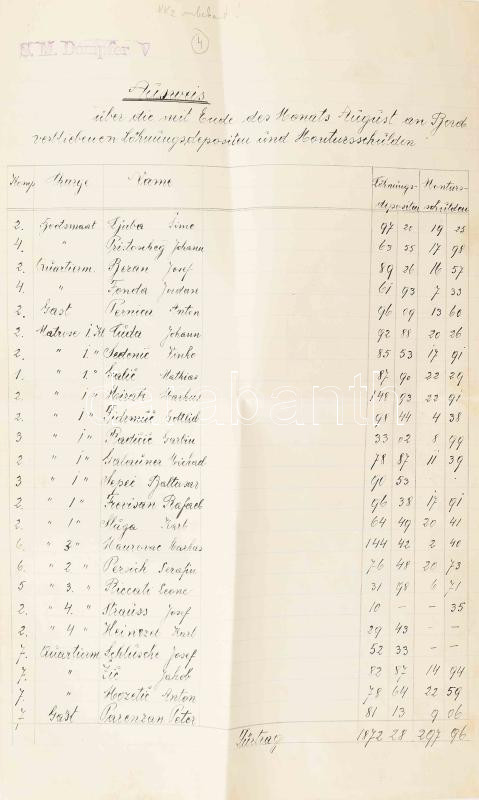 K.K.
4
S. M. Dampfer V
Ausweis
über die mit Ende des Monats August an Bord
verbliebenen Löhnungsdepositen und Montursschulden
Komp Charge Name Löhnungs- Monturs-
depositen schulden
2. Bootsmaat Ljuba Sime 97 20 19 25
4. " Johann 63 55 17 98
2. Quartierm. Beran Josef 89 26 16 57
4. " Fonda Jordan 61 93 7 33
2. Gast Pernica Anton 96 09 13 60
2. Matrose 1. Kl Tuda Johann 92 88 20 26
2. " 1. " Sedenic Vinko 85 53 17 91
1. " 1. " Galić Mathias 87 90 22 29
2. " 1 " Markus 148 93 22 91
2. " 1 " Gottlieb 98 44 4 38
3 " 1 " Radičić Martin 33 02 8 99
2 " 1 " Galauner Michael 78 87 11 39
3 " 1 " Baltasar 90 53 - -
2. " 1 " Trevisan Rafael 96 38 17 91
2. " 1 " Sluga Karl 64 49 20 41
6. " 3 " Maurovac Markus 144 42 2 40
6. " 2 " Persich Serafin 76 48 20 73
5 " 3. " Piccoli Leone 31 98 6 71
2. " 4. " Strauss Josef 10 - - 35
2. " 4 " Karl 29 43 - -
7. Quartierm Schlüsche Josef 52 33 - -
7. " Zić Jakob 82 87 14 94
7 " Mozetić Anton 78 64 22 59
7 Gast Parenzan Peter 81 13 9 06
Fürtrag 1872 28 297 96
darabanth